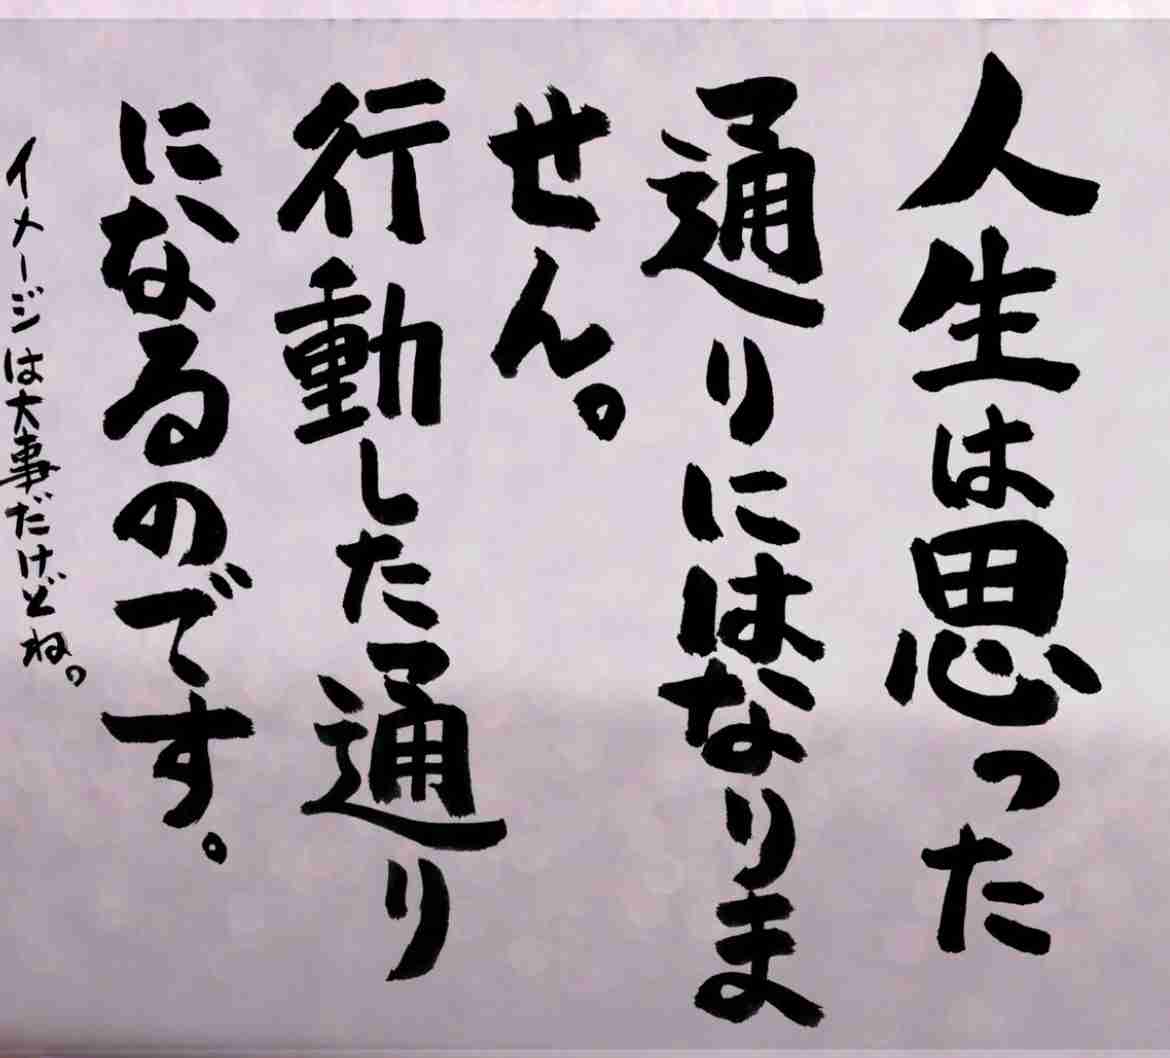 人生は思った
通りにはなりま
せん。
行動した通り
になるのです。
イメージは大事だけどね。